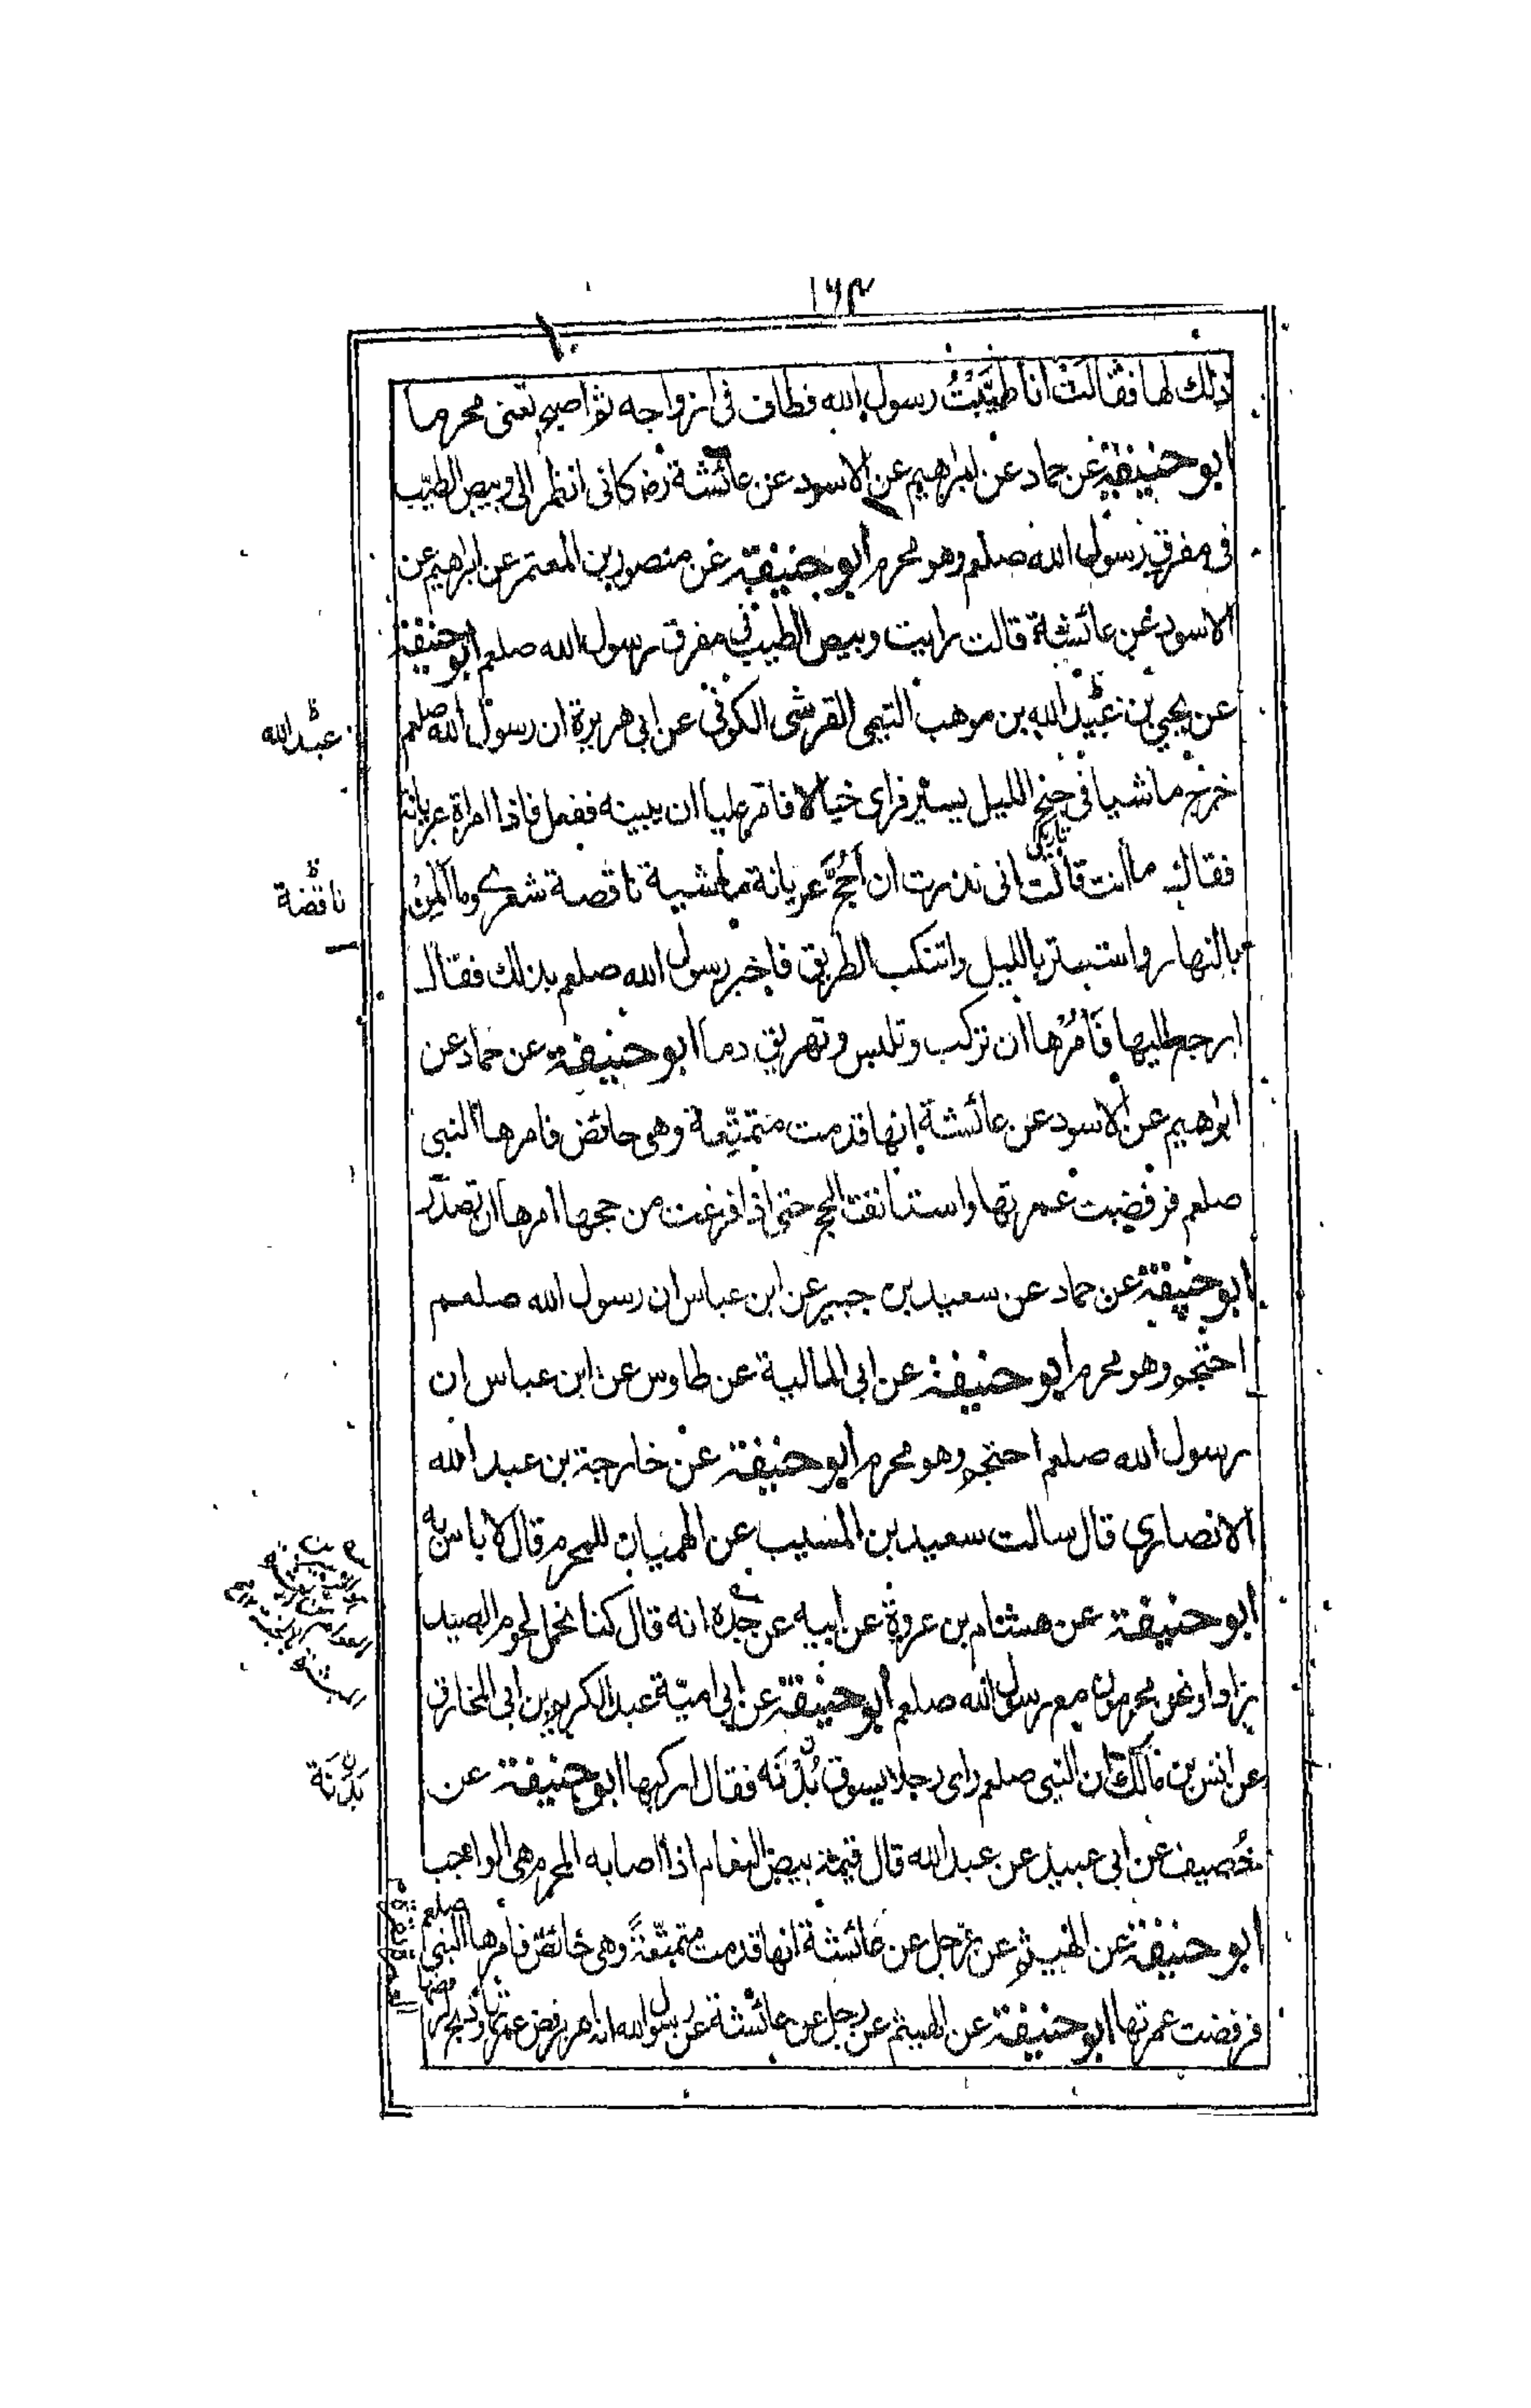 ١٦٣
ذلك لها فقالت انا طيّبتُ رسول الله فطاف فى ازواجه ثم اصبح تعنى محرما
ابو حنيفة عن حماد عن ابراهيم عن الاسود عن عائشة رضـ كانى انظر الى وبيص الطيب
فى مفرق رسول الله صلعم وهو محرم ابو حنيفة عن منصور بن المعتمر عن ابراهيم عن
الاسود عن عائشة قالت رايت وبيص الطيب فى مفرق رسول الله صلعم ابو حنيفة
عن يحيى بن عبيد الله بن موهب التيمى القرشى الكوفى عن ابى هريرة ان رسول الله صلعم
عبد الله
خرج ماشيا فى جنح الليل يسير فراى خيالا فامر عليا ان يبينه ففعل فاذا امراة عريانة
فقال ما انت قالت انى نذرت ان احُجَّ عريانة ماشية ناقصة شعرى وما اكمن
ناقضة
بالنهار واستتر بالليل واتنكب الطريق فاخبر رسول الله صلعم بذلك فقال
ارجع اليها فَأمُرْها ان تركب وتلبس وتهريق دما ابو حنيفة عن حماد عن
ابراهيم عن الاسود عن عائشة انها قدمت متمتّعة وهى حائض فامرها النبى
صلعم فرفضت عمرتها واستانفت الحج حتى اذا فرغت من حجها امرها ان تصدر
ابو حنيفة عن حماد عن سعيد بن جبير عن ابن عباس ان رسول الله صلعم
احتجم وهو محرم ابو حنيفة عن ابى العالية عن طاوس عن ابن عباس ان
رسول الله صلعم احتجم وهو محرم ابو حنيفة عن خارجة بن عبد الله
الانصارى قال سالت سعيد بن المسيب عن الهميان للمحرم قال لا باس به
ابو حنيفة عن هشام بن عروة عن ابيه عن جده انه قال كنا نحمل لحوم الصيد
زادا ونحن محرمون مع رسول الله صلعم ابو حنيفة عن ابى اميّة عبد الكريم بن ابى المخارق
عن انس بن مالك ان النبى صلعم راى رجلا يسوق بُدْنَه فقال اركبها ابو حنيفة عن
بَدَنَة
خُصيف عن ابى عبيد عن عبد الله قال قيمة بيض النعام اذا اصابه المحرم هى الواجب
ابو حنيفة عن الهيثم عن رجل عن عائشة انها قدمت متمتّعةً وهى حائض فامرها النبى صلعم
فرفضت عمرتها ابو حنيفة عن الهيثم عن رجل عن عائشة عن رسول الله انه امر برفض عمرتها وذبح